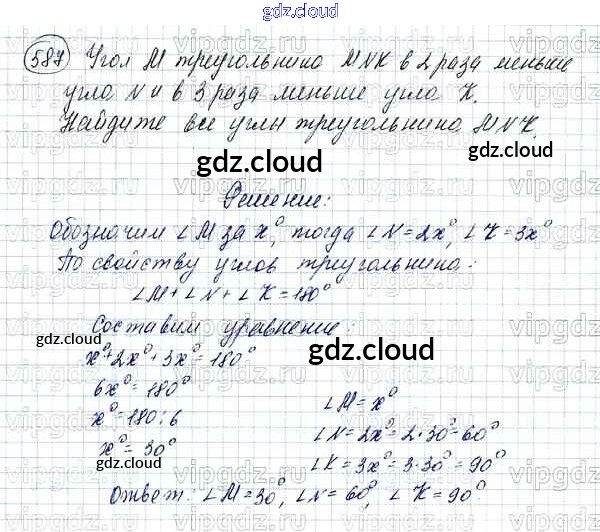 gdz.cloud
587 Угол M треугольника MNK в 2 раза меньше
угла N и в 3 раза меньше угла K.
Найдите все углы треугольника MNK.
gdz.cloud
gdz.cloud
Решение:
Обозначим ∠M за x°, тогда ∠N=2x°, ∠K=3x°
По свойству углов треугольника:
∠M+∠N+∠K=180°
Составим уравнение:
gdz.cloud
gdz.cloud
x°+2x°+3x°=180°
6x°=180°
x°=180:6
x°=30°
∠M=x°
∠N=2x°=2·30°=60°
∠K=3x°=3·30°=90°
gdz.cloud
gdz.cloud
Ответ: ∠M=30°, ∠N=60°, ∠K=90°